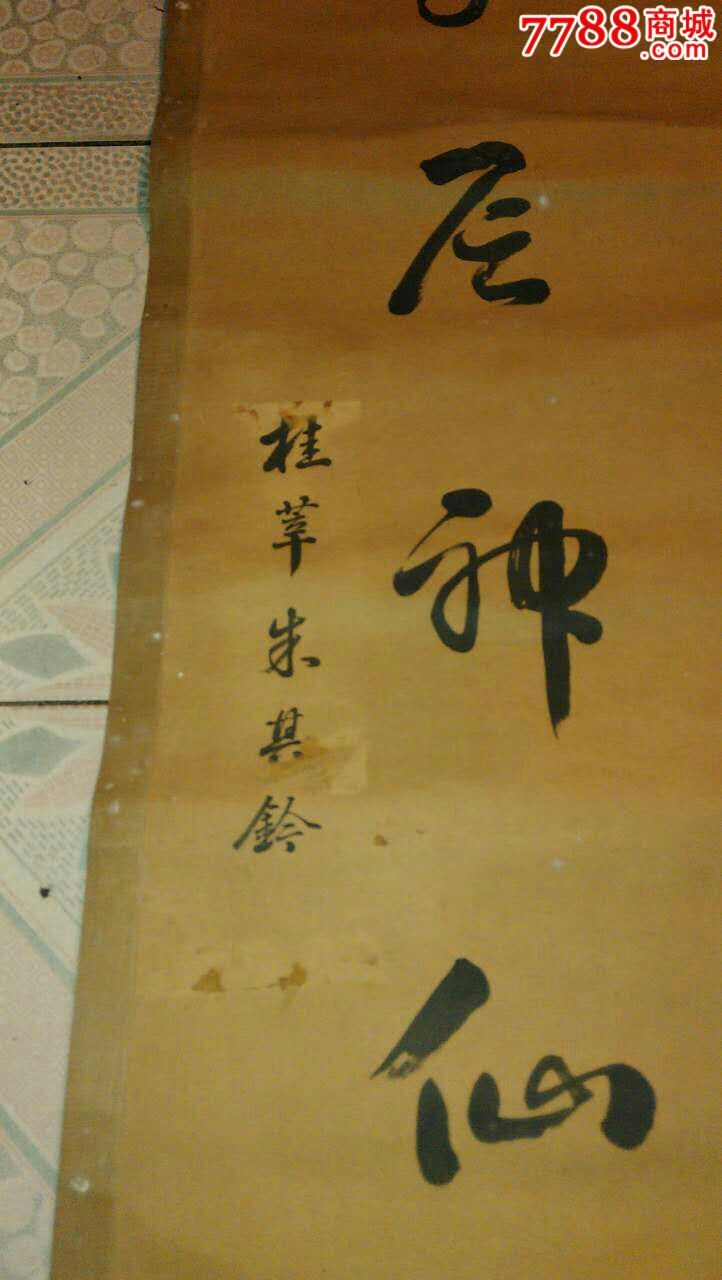 神仙
桂莘朱其鈐
7788商城
.com